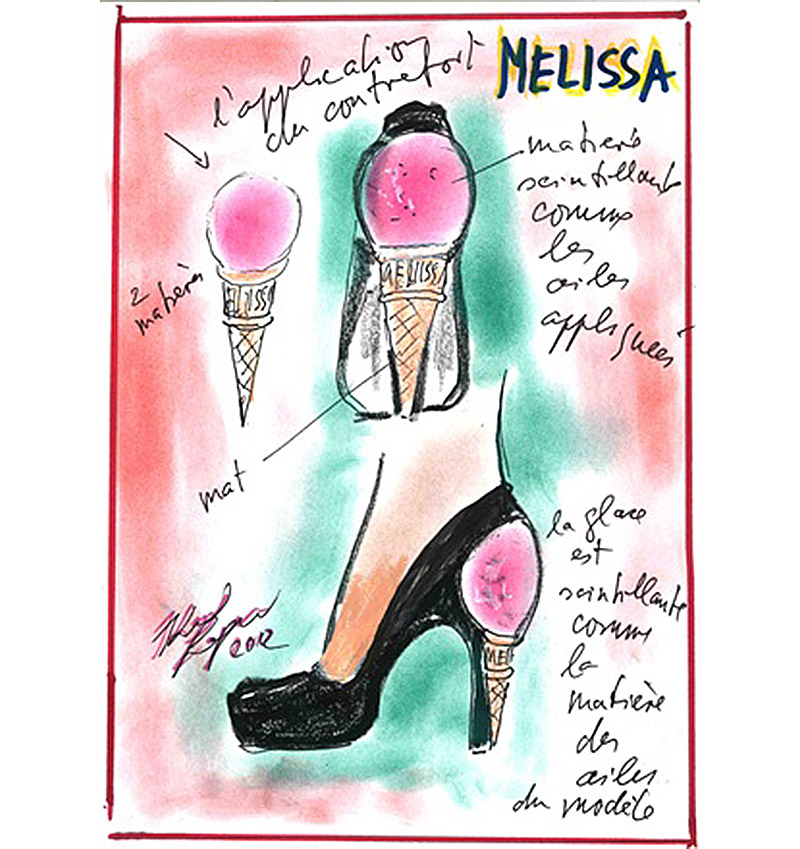 l'application
du contrefort
MELISSA
matière
scintillante
comme
les
ailes
appliquées
2
matières
MELISSA
MELISSA
mat
la glace
est
scintillante
comme
la
matière
des
ailes
du modèle
MEL
2012